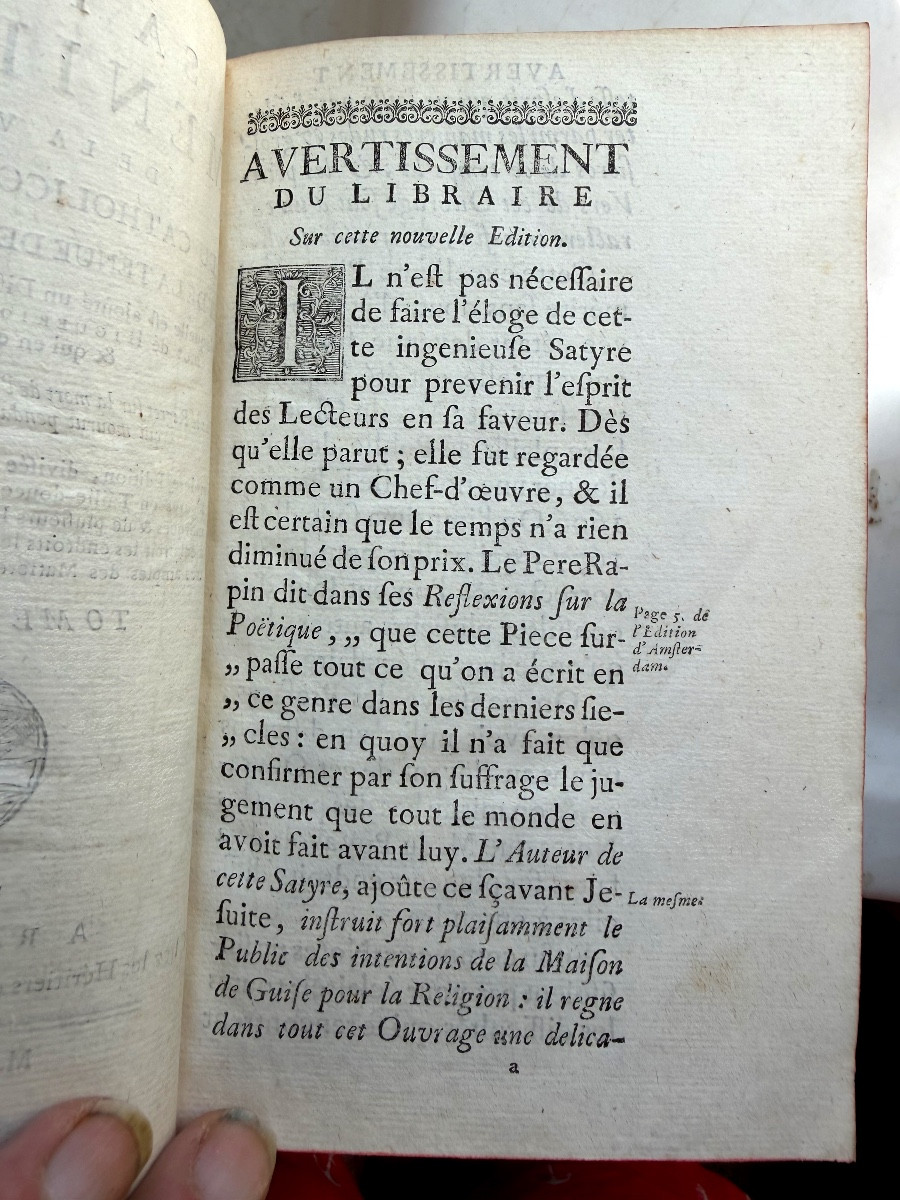 AVERTISSEMENT
DU LIBRAIRE
Sur cette nouvelle Edition.
IL n'eſt pas néceſſaire
de faire l'éloge de cet-
te ingenieuſe Satyre
pour prevenir l'eſprit
des Lecteurs en ſa faveur. Dès
qu'elle parut ; elle fut regardée
comme un Chef-d'œuvre, & il
eſt certain que le temps n'a rien
diminué de ſon prix. Le Pere Ra-
pin dit dans ſes Reflexions ſur la
Poëtique, ,, que cette Piece ſur-
,, paſſe tout ce qu'on a écrit en
,, ce genre dans les derniers ſie-
,, cles : en quoy il n'a fait que
confirmer par ſon ſuffrage le ju-
gement que tout le monde en
avoit fait avant luy. L'Auteur de
cette Satyre, ajoûte ce ſçavant Je-
ſuite, inſtruit fort plaiſamment le
Public des intentions de la Maiſon
de Guiſe pour la Religion : il regne
dans tout cet Ouvrage une delica-
a
Page 5. de
l'Edition
d'Amſter-
dam.
La meſme.
TOME